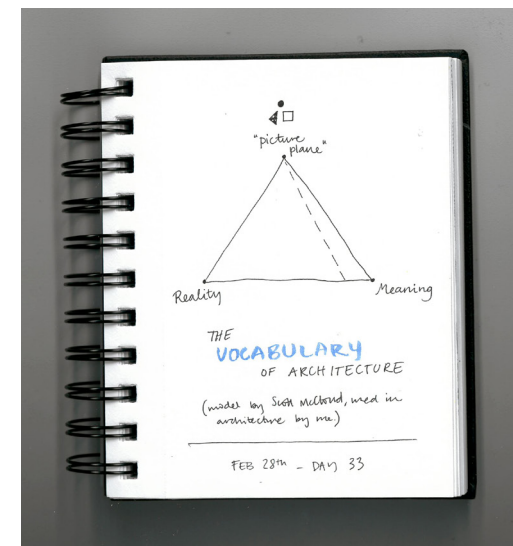 "picture
plane"
Reality
Meaning
THE
VOCABULARY
OF ARCHITECTURE
(model by Scott McCloud, used in
architecture by me.)
FEB 28th - DAY 33